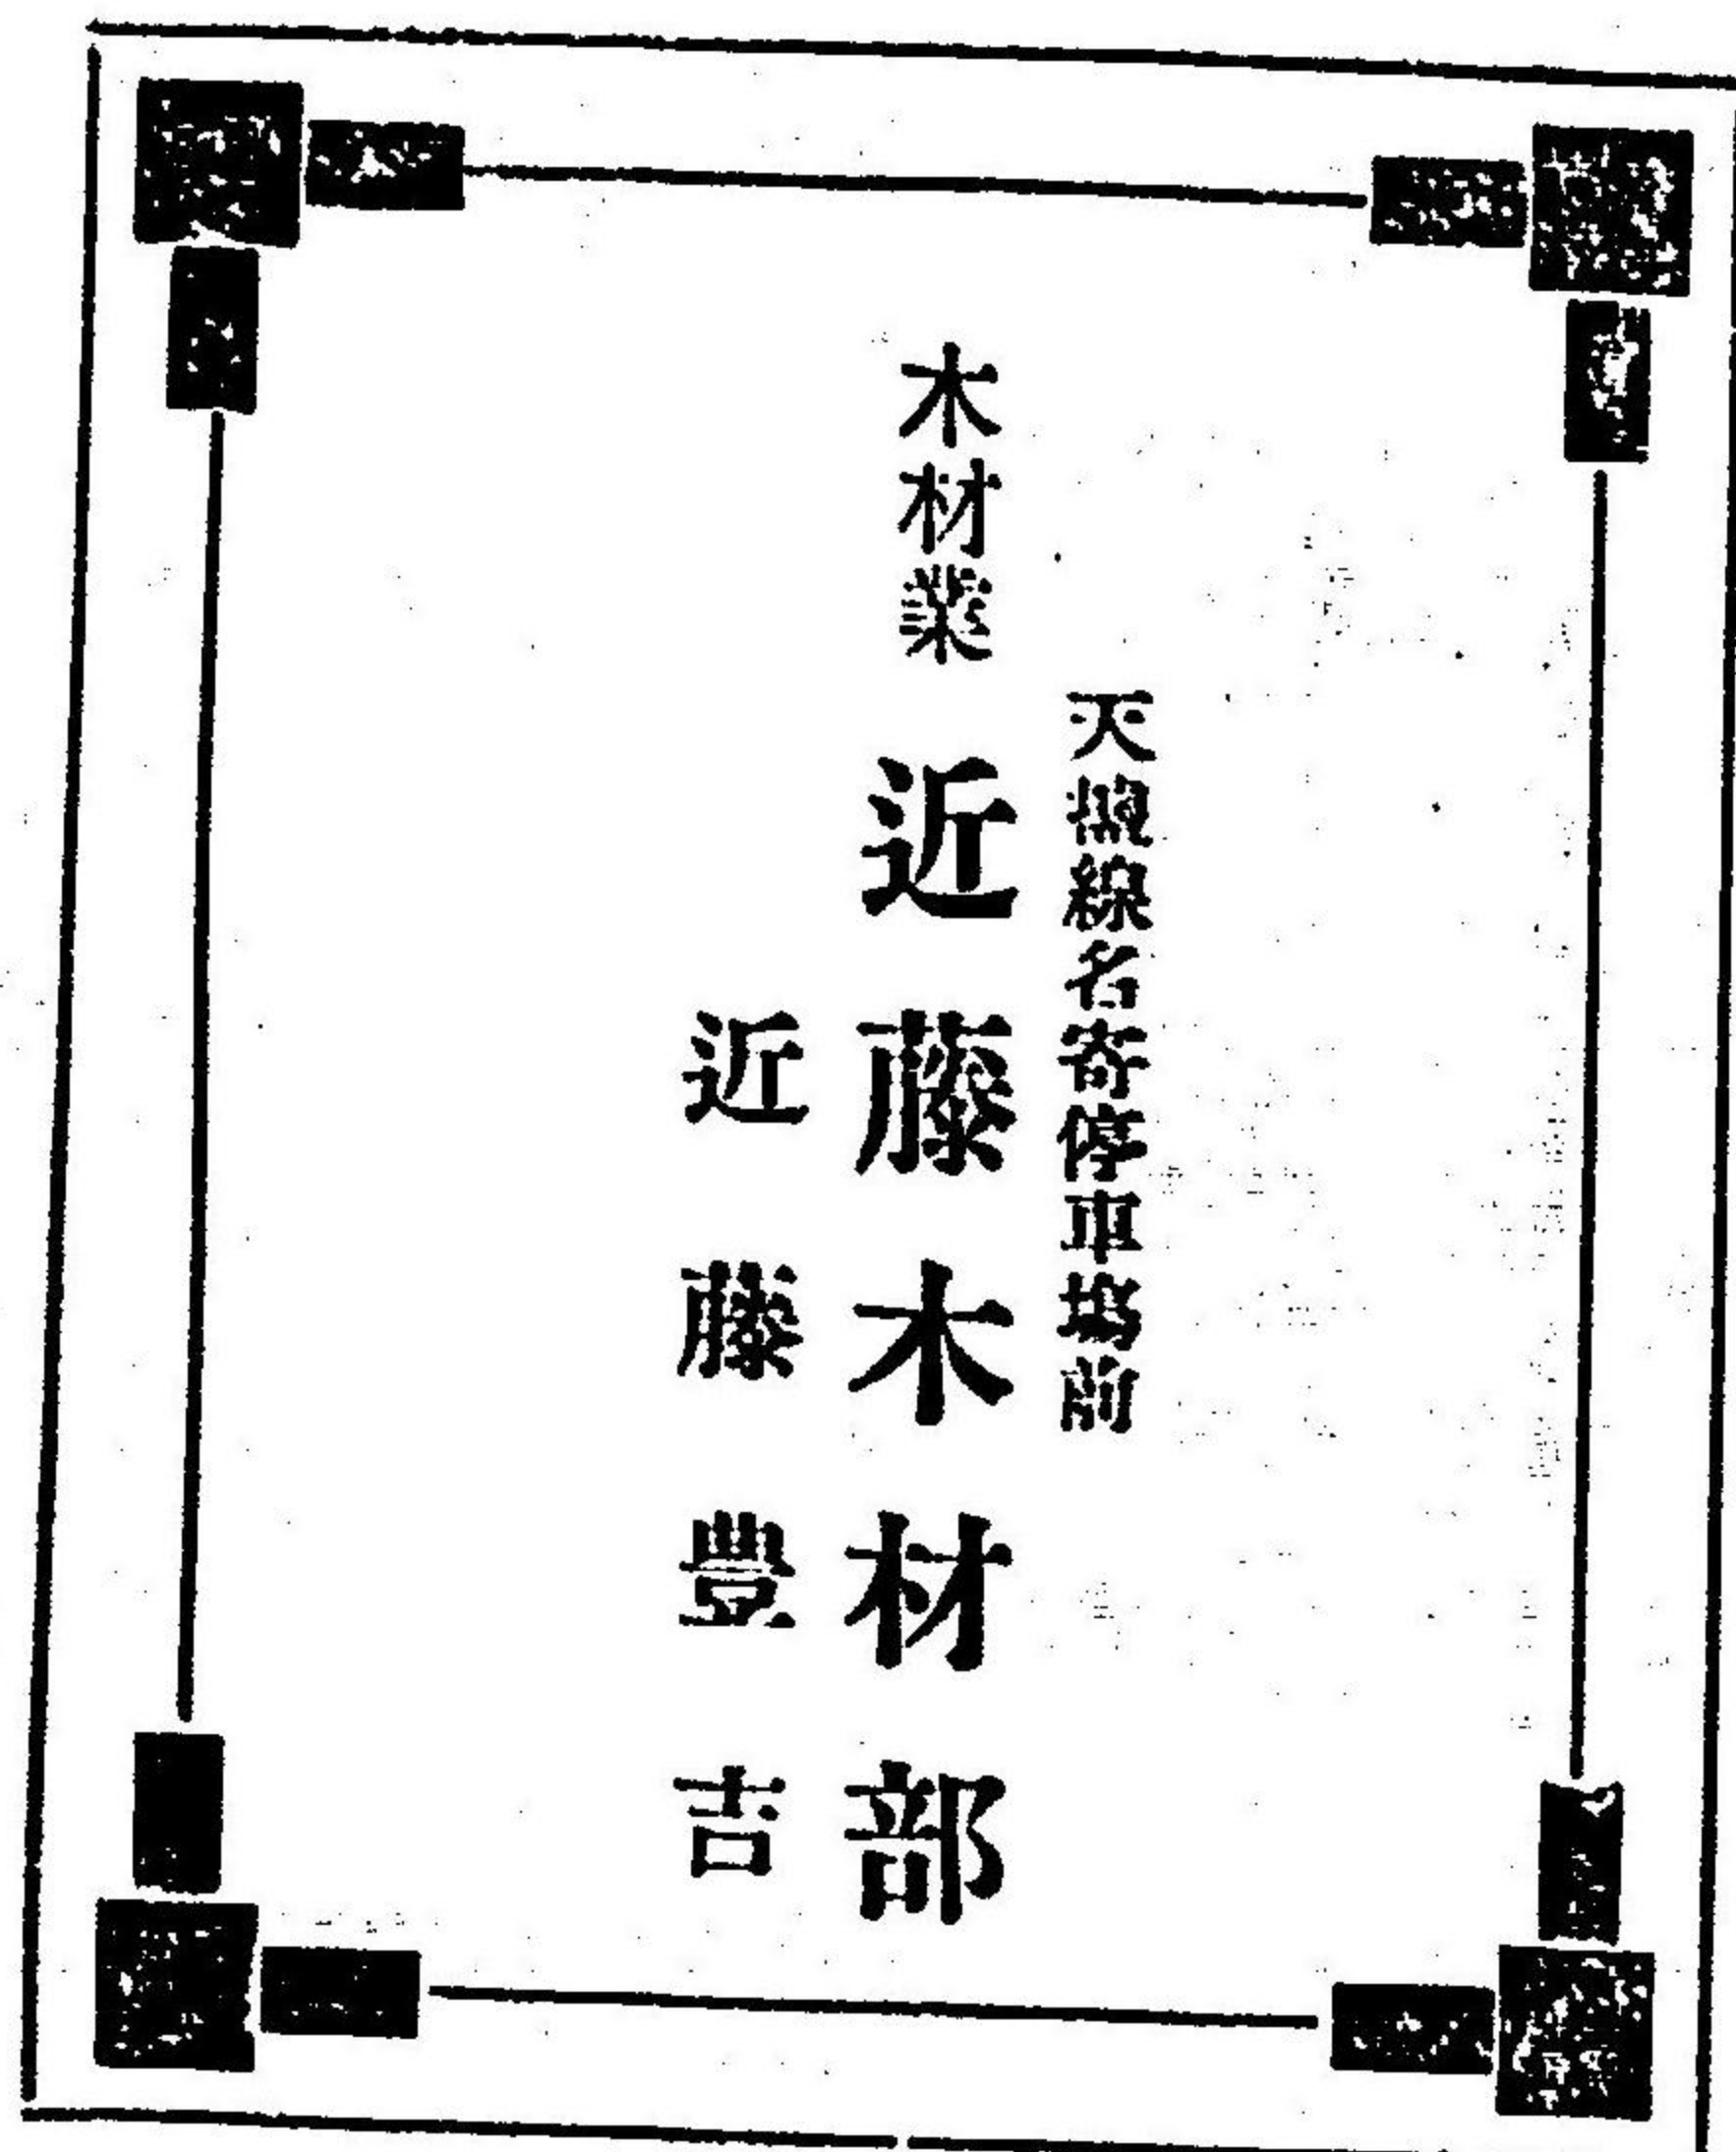 天塩線名寄停車場前
木材業 近藤木材部
近藤豊吉